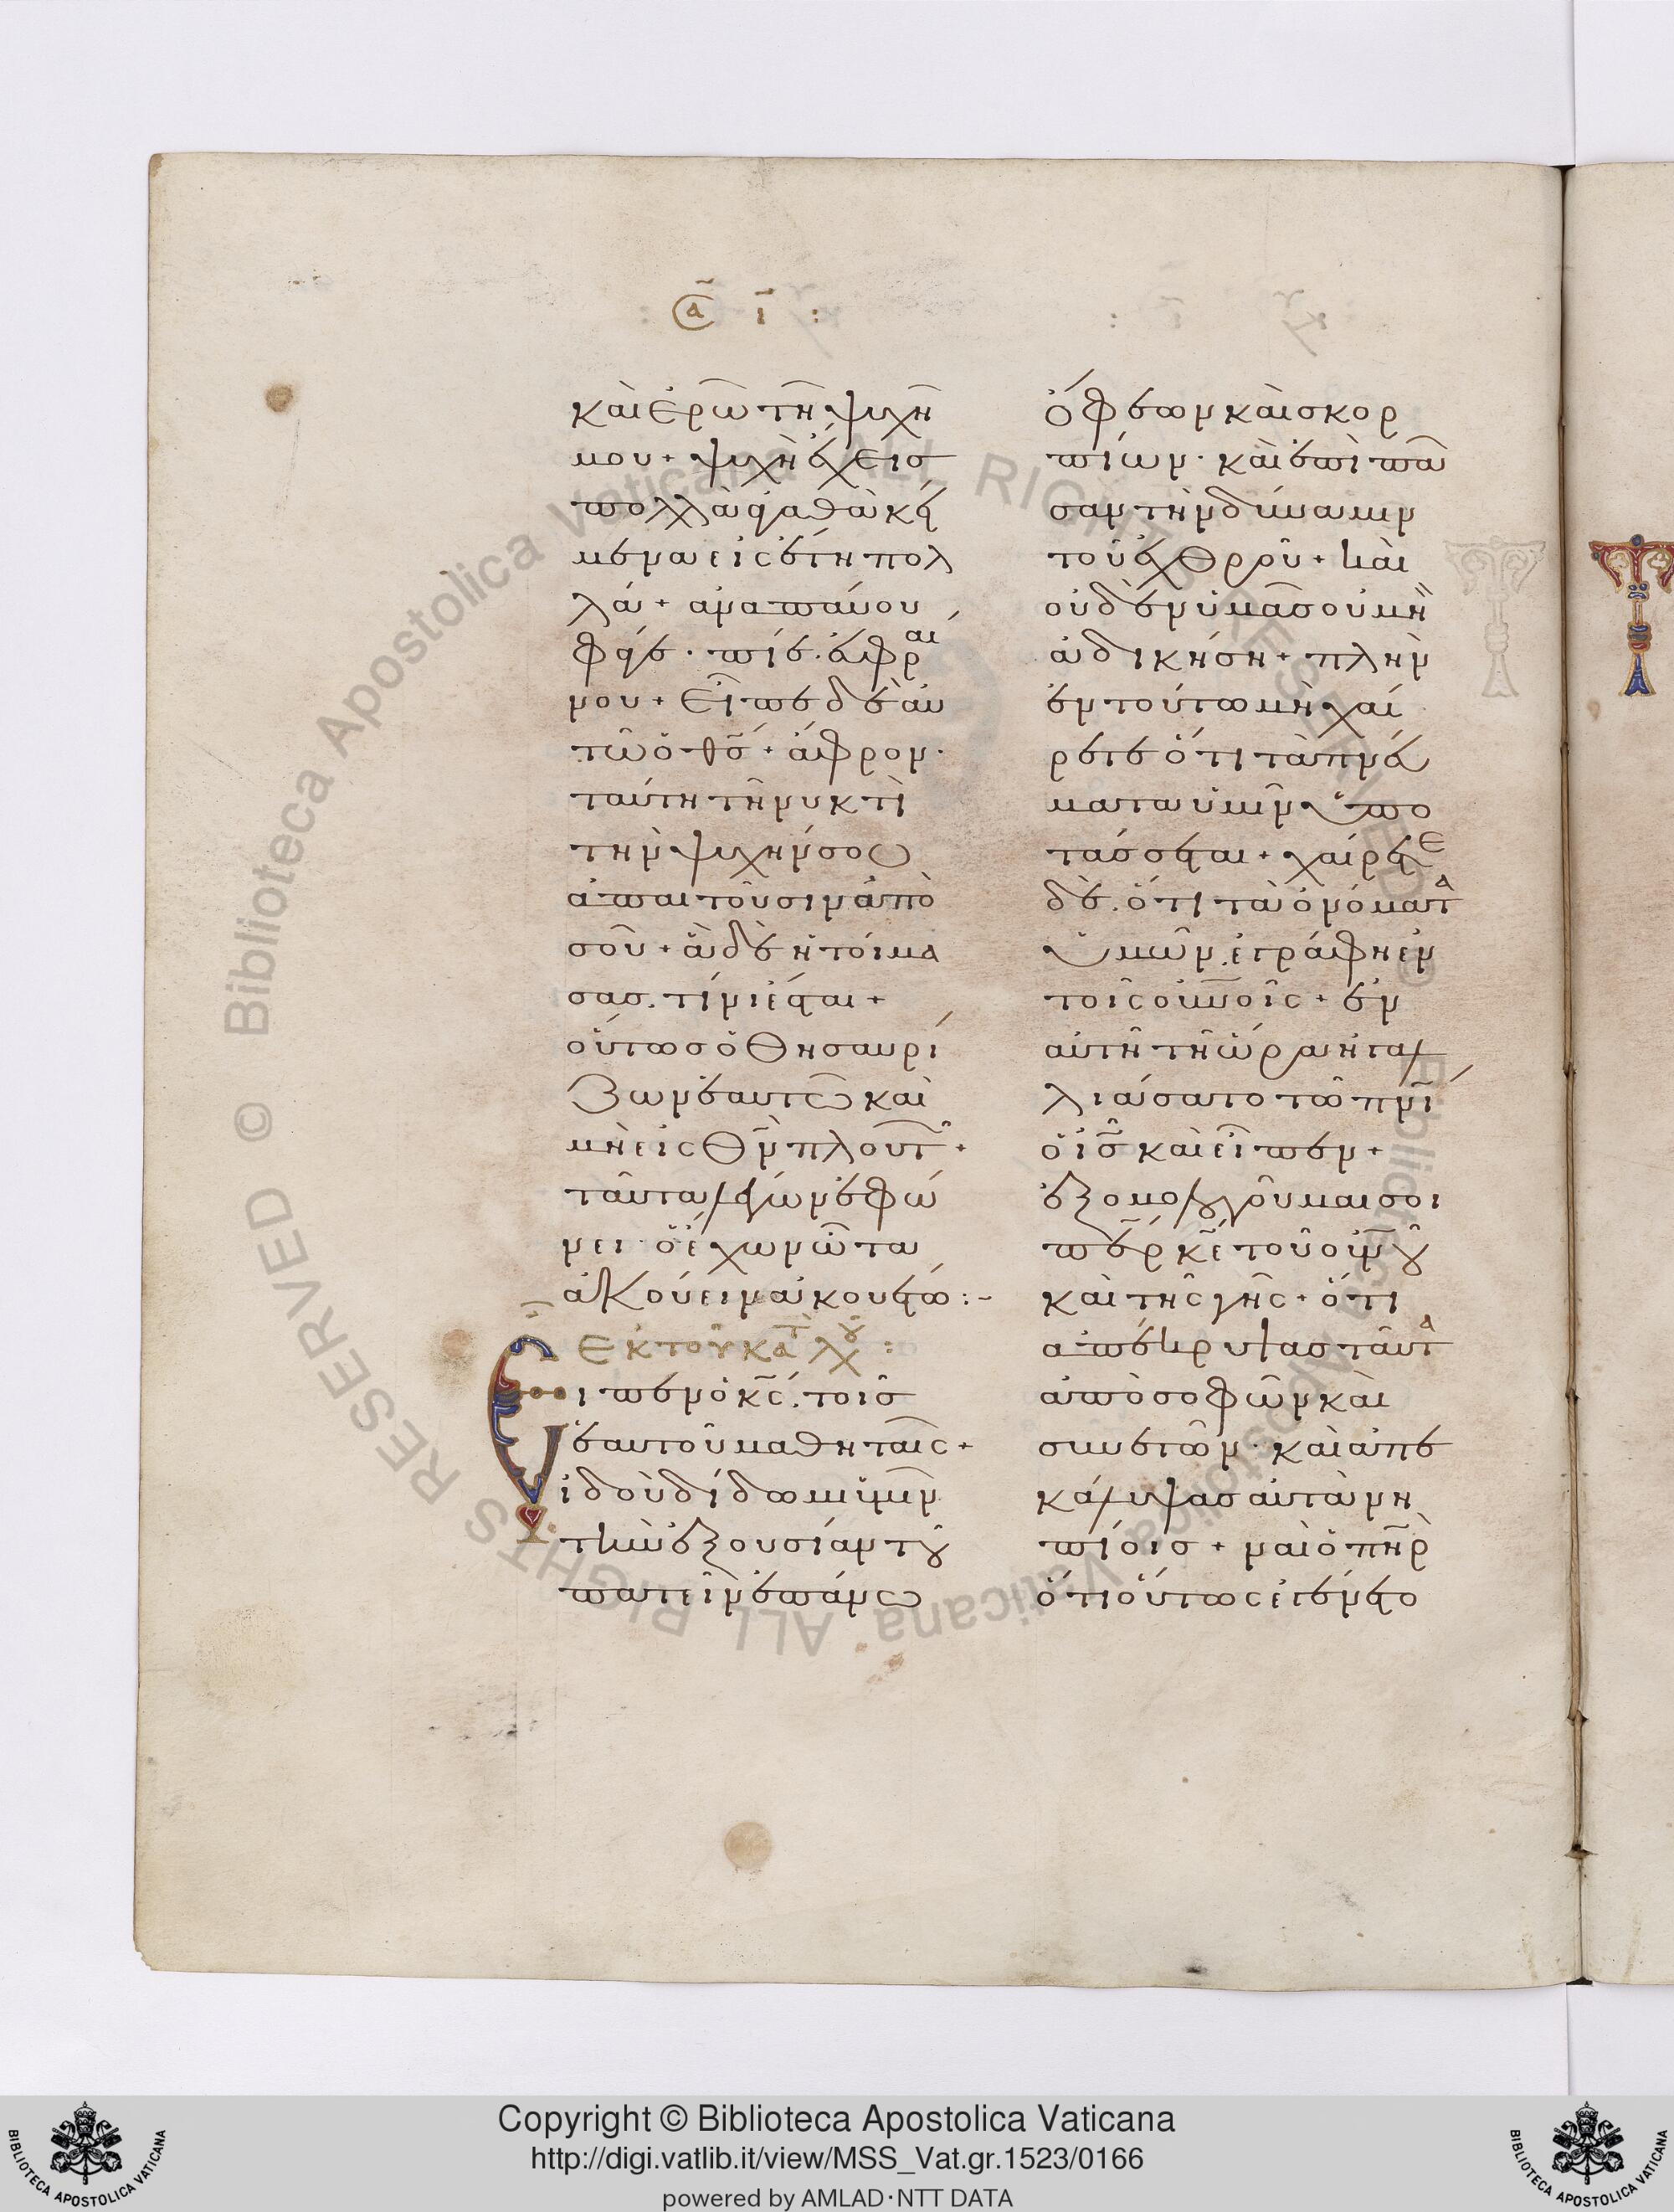 ϹΑ ῑ :
καὶ ἐρῶ τῆ ψυχῆ
μου + ψυχὴ ἔχεισ
πολλὰ ἀγαθὰ κεί
μενα εἰς ἔτη πολ
λά + ἀναπαύου
φάγε · πίε · εὐφραί
νου + εἶπε δὲ αὐ
τῶ ὁ θ̅σ̅ + ἄφρον ·
ταύτη τῆ νυκτὶ
τὴν ψυχήν σου
ἀπαιτοῦσιν ἀπὸ
σοῦ + ἃ δὲ ἡτοίμα
σασ . τίνι ἔσται +
οὕτωσ ὁ θησαυρί
ζων ἑαυτῶ καὶ
μὴ εἰς θ̅ν̅ πλουτῶ +
ταῦτα λέγων ἐφώ
νει · ὁ ἔχων ὦτα
ἀκούειν ἀκουέτω :-
ἐκ τοῦ κατ λου :
Ειπεν ὁ κ̅ς̅ . τοῖσ
ἑαυτοῦ μαθηταῖς +
ἰδοὺ δίδωμι ὑμῖν
τὴν ἐξουσίαν τοῦ
πατεῖν ἐπάνω
ὄφεων καὶ σκορ
πίων · καὶ ἐπὶ πᾶ
σαν τὴν δύναμιν
τοῦ ἐχθροῦ + καὶ
οὐδὲν ὑμᾶσ οὐ μὴ
ἀδικήση + πλὴν
ἐν τούτω μὴ χαί
ρετε ὅτι τὰ πνεύ
ματα ὑμῖν ὑπο
τάσσεται + χαίρετε
δὲ . ὅτι τὰ ὀνόματα
ὑμῶν . ἐγράφη ἐν
τοῖς οὐνοῖς + ἐν
αὐτῆ τῆ ὥρα ἠγαλ
λιάσατο τῶ π̅ν̅ι̅
ὁ ι̅σ̅ καὶ εἶπεν +
ἐξομολογοῦμαι σοι
π̅ε̅ρ̅ κ̅ε̅ τοῦ οὐνοῦ
καὶ τῆς γῆς + ὅτι
ἀπέκρυψασ ταῦτα
ἀπὸ σοφῶν καὶ
συνετῶν · καὶ ἀπε
κάλυψασ αὐτὰ νη
πίοισ + ναὶ ὁ π̅η̅ρ̅
ὅτι οὕτως ἐγένετο
Copyright © Biblioteca Apostolica Vaticana
http://digi.vatlib.it/view/MSS_Vat.gr.1523/0166
powered by AMLAD·NTT DATA
BIBLIOTECA APOSTOLICA VATICANA
BIBLIOTECA APOSTOLICA VATICANA
© Biblioteca Apostolica Vaticana ALL RIGHTS RESERVED
© Biblioteca Apostolica Vaticana ALL RIGHTS RESERVED